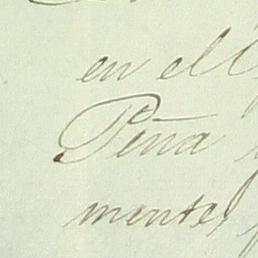 en el
Peña
mente,